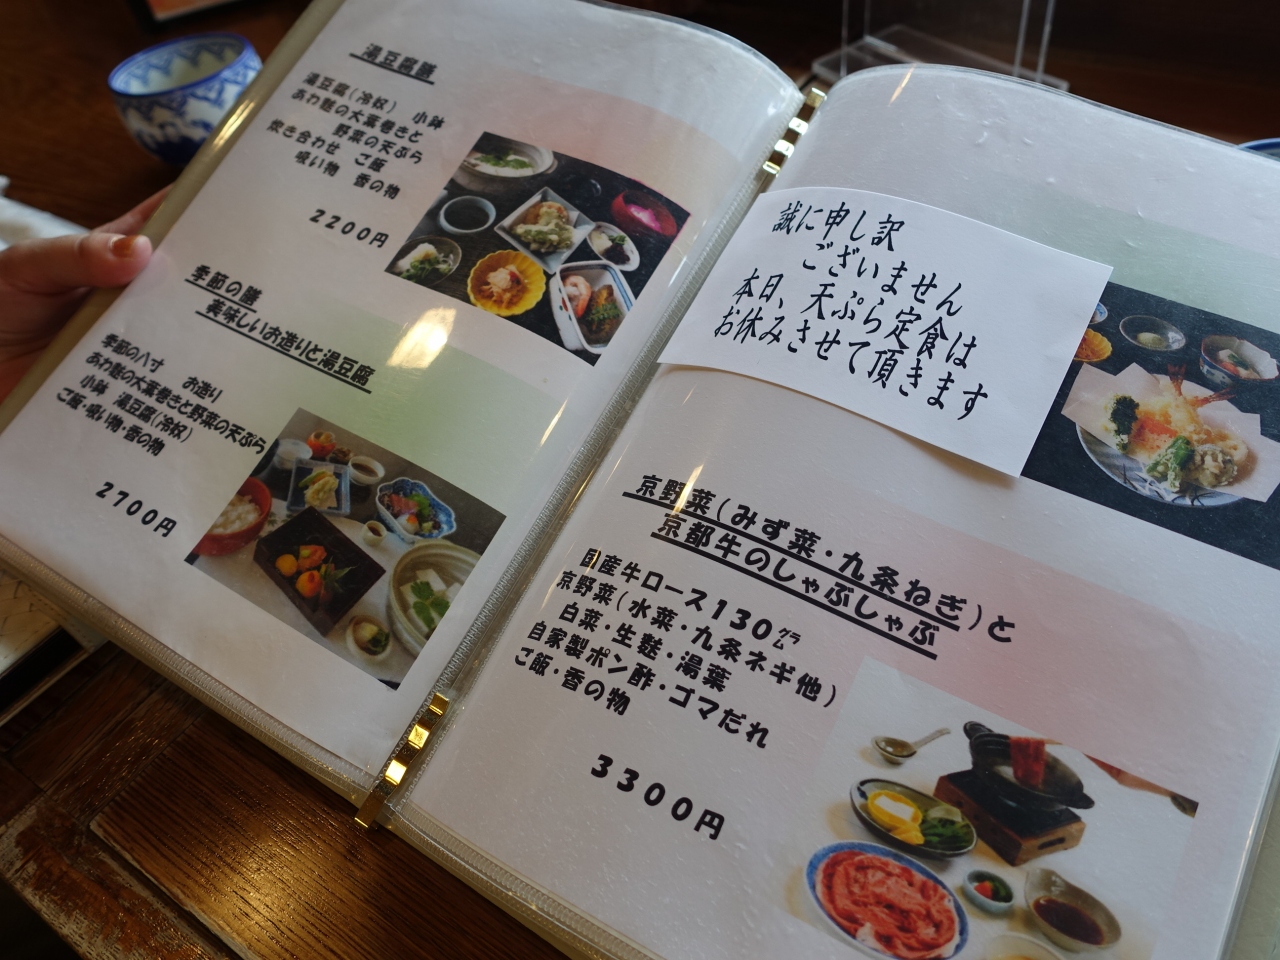 湯豆腐膳
湯豆腐(冷奴) 小鉢
あわ麩の大葉巻きと
野菜の天ぷら
炊き合わせ ご飯
吸い物 香の物
2200円
季節の膳
美味しいお造りと湯豆腐
季節の八寸 お造り
あわ麩の大葉巻きと野菜の天ぷら
小鉢 湯豆腐(冷奴)
ご飯・吸い物・香の物
2700円
誠に申し訳
ございません
本日、天ぷら定食は
お休みさせて頂きます
京野菜(みず菜・九条ねぎ)と
京都牛のしゃぶしゃぶ
国産牛ロース130㌘
京野菜(水菜・九条ネギ他)
白菜・生麩・湯葉
自家製ポン酢・ゴマだれ
ご飯・香の物
3300円